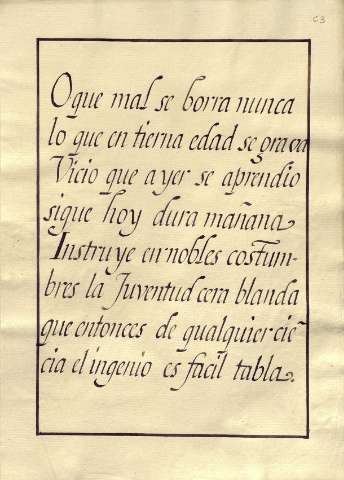 63
O que mal se borra nunca
lo que en tierna edad se grava
Vicio que ayer se aprendio
sigue hoy dura mañana
Instruye en nobles costum-
bres la Juventud cera blanda
que entonces de qualquier cie~
cia el ingenio es facil tabla.